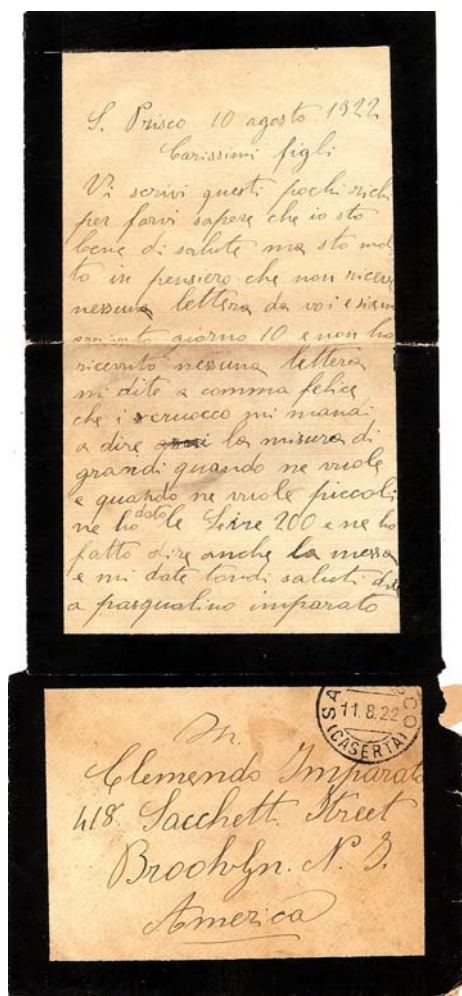 S. Prisco 10 agosto 1922
Carissimi figli
Vi scrivi questi pochi righi
per farvi sapere che io sto
bene di salute ma sto mol
to in pensiero che non ricevo
nessuna lettera da voi e siamo
giorno 10 e non ho
ricevuto nessuna lettera
mi dite a comma felice
che i mi manda
a dire la misura di
grandi quando ne vuole
e quando ne vuole piccoli
ne ho dato le Leire 200 e ne ho
fatto dire anche la messa
e mi date tandi saluti
a pasqualino imparato
SA CO
11.8.22
(CASERTA)
M.
Clemendo Imparato
418 Sacchett Street
Brooklyn. N. J.
America